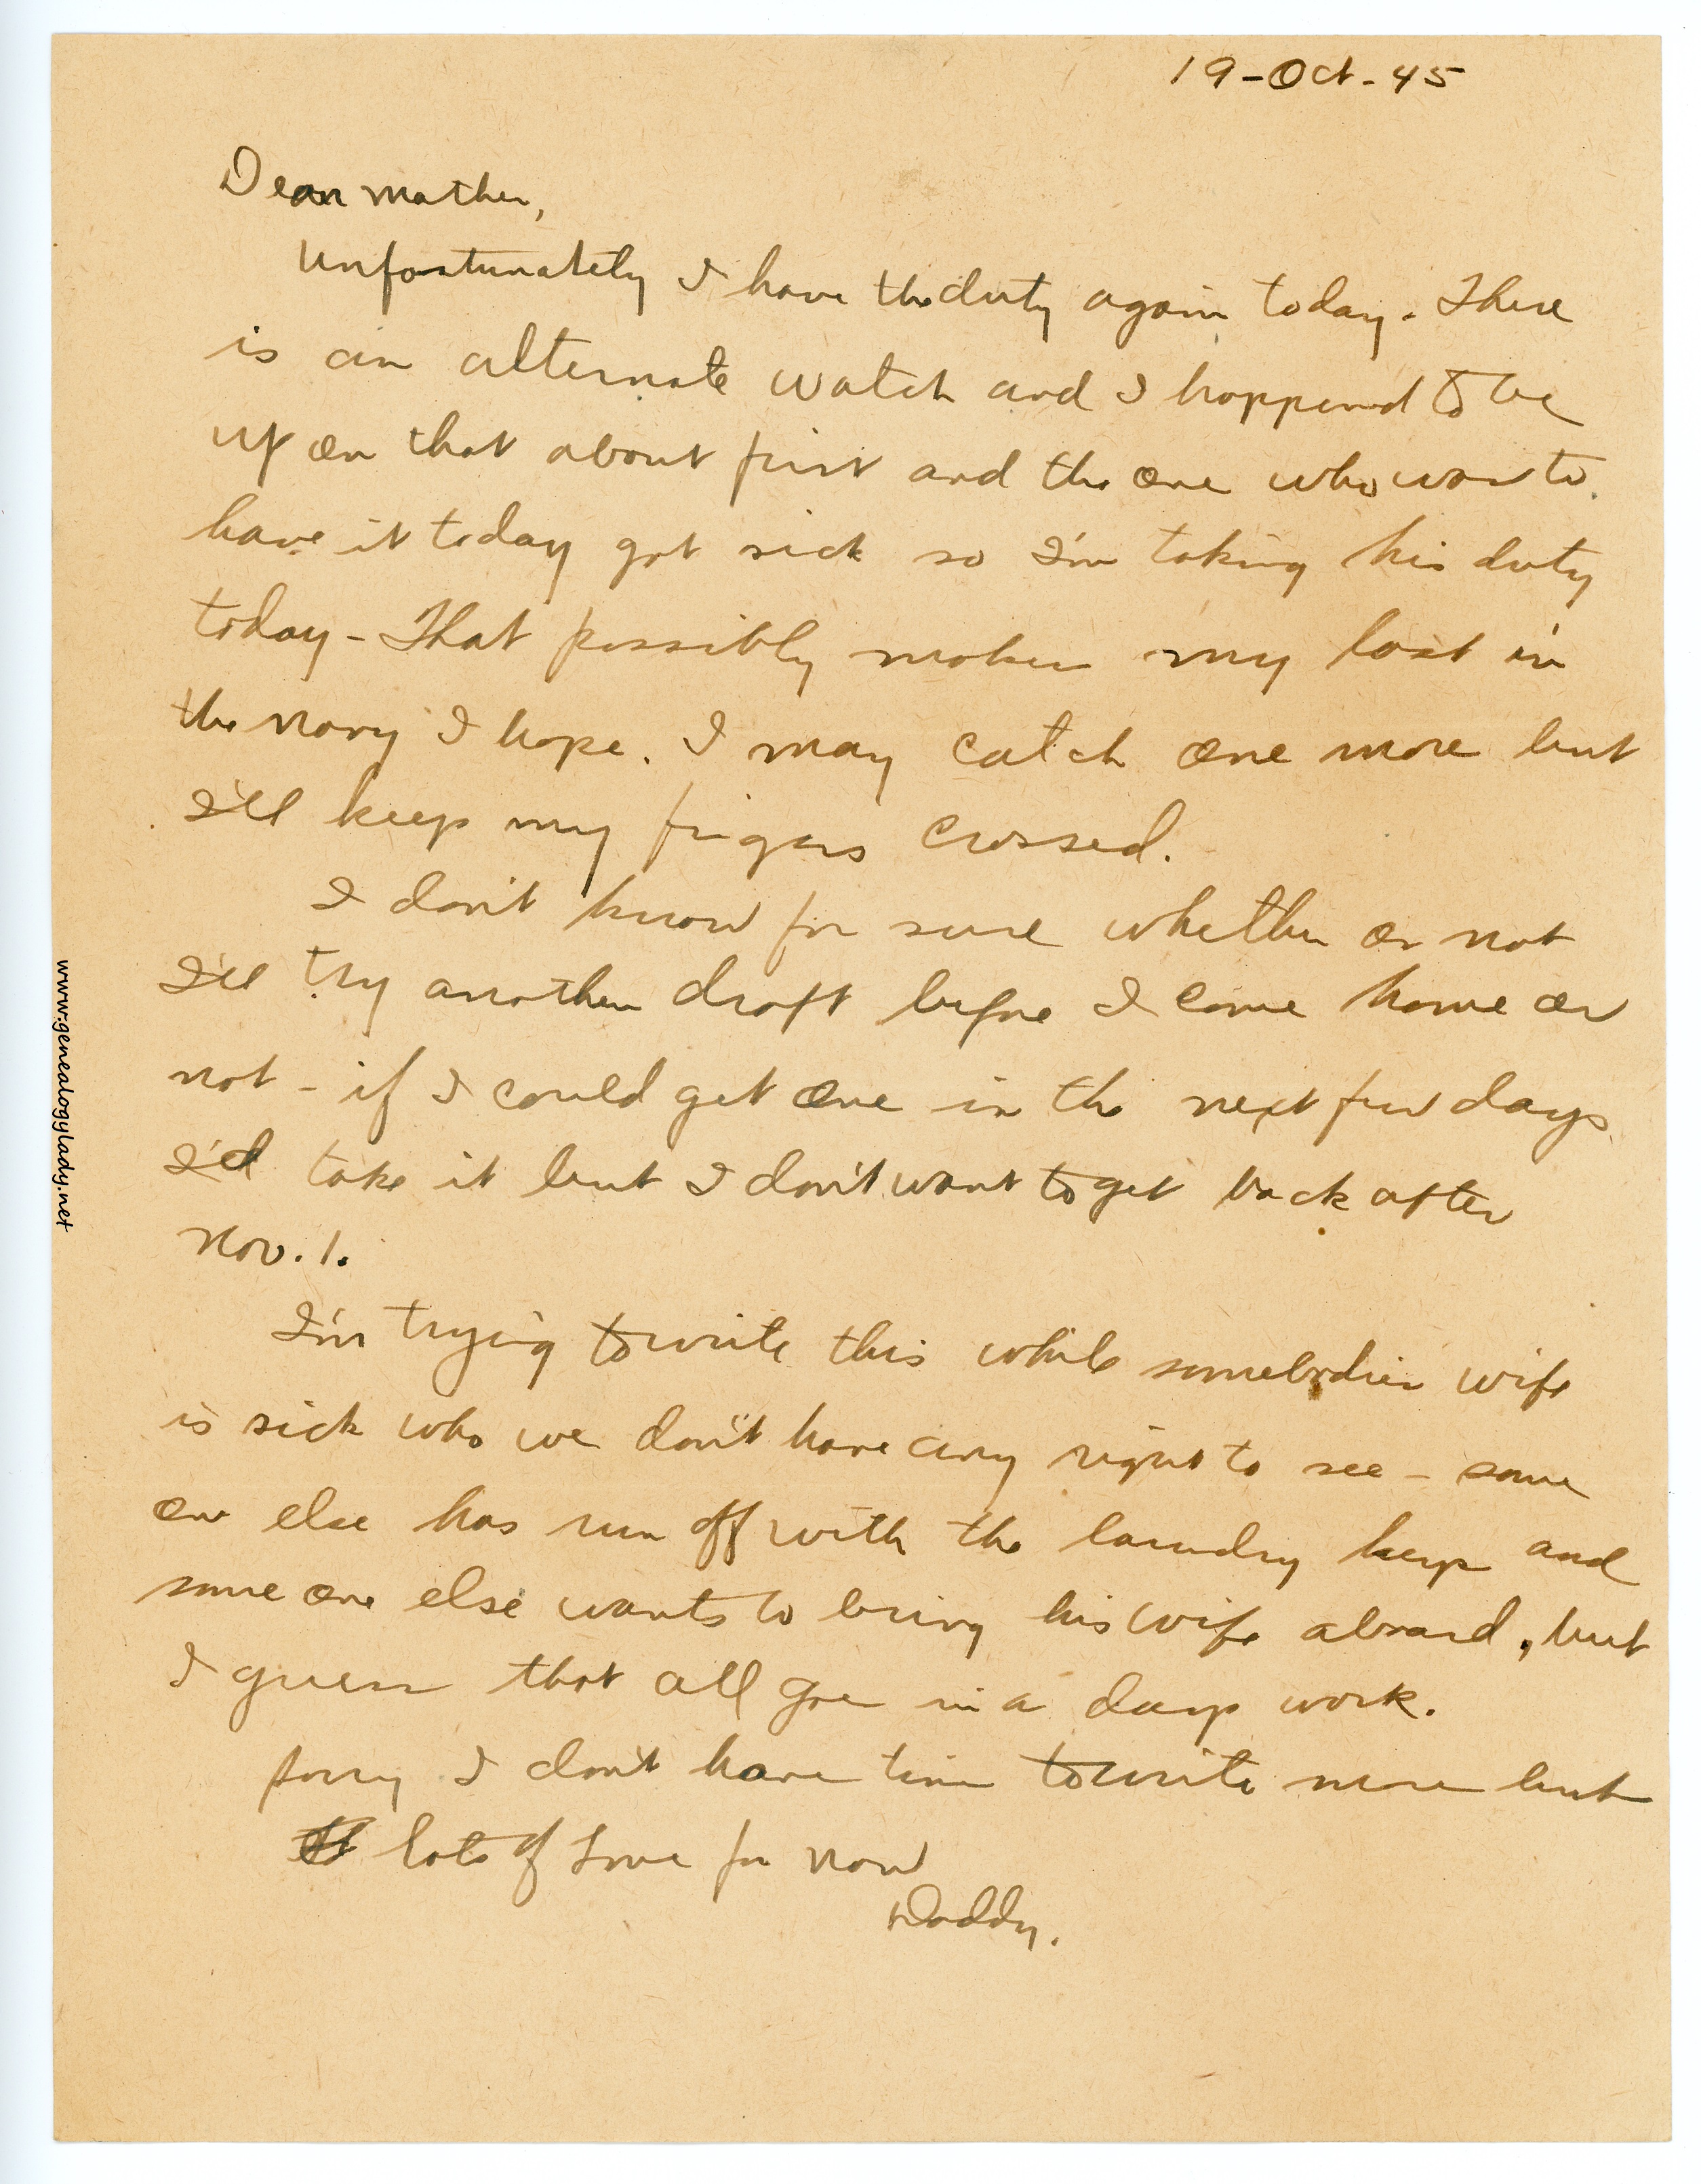 19-Oct-45
Dear Mother,
Unfortunately I have the duty again today. There
is an alternate watch and I happened to be
up on that about first and the one who was to
have it today got sick so I'm taking his duty
today - That possibly makes my last in
the Navy I hope. I may catch one more but
I'll keep my fingers crossed.
I don't know for sure whether or not
I'll try another draft before I come home or
not - if I could get one in the next few days
I'd take it but I don't want to get back after
Nov. 1.
I'm trying to write this while somebodies wife
is sick who we don't have any right to see - some
one else has run off with the laundry keys and
some one else wants to bring his wife aboard, but
I guess that all goes in a days work.
Sorry I don't have time to write more but
lots of Love for now
Daddy.
www.genealogylady.net